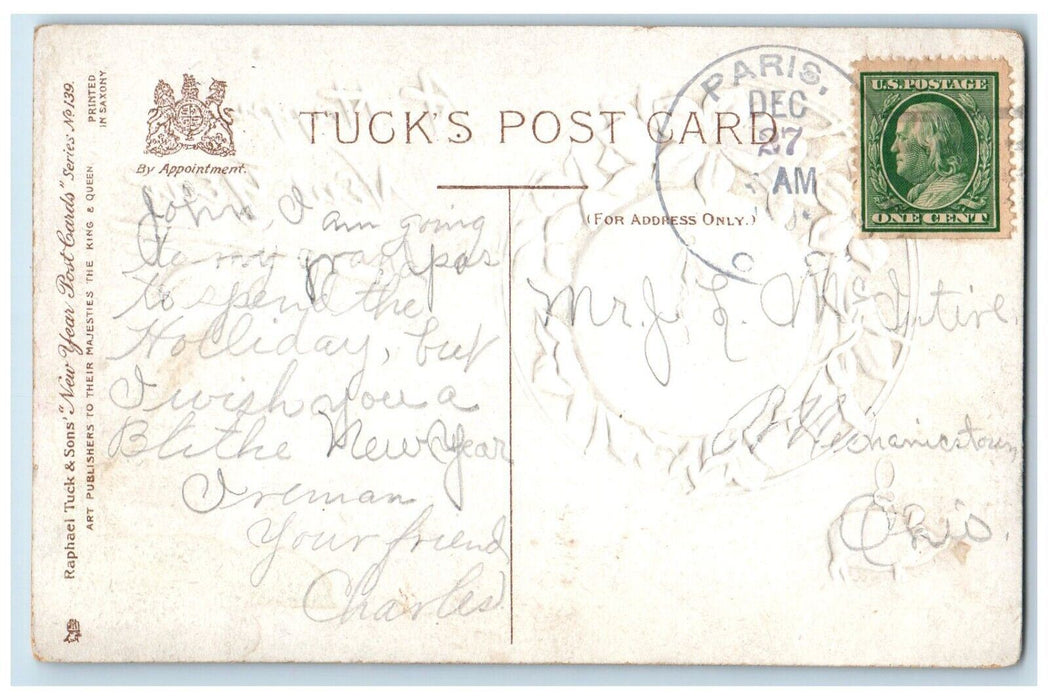 Raphael Tuck & Sons' "New Year Post Cards" Series No 139.
ART PUBLISHERS TO THEIR MAJESTIES THE KING & QUEEN
PRINTED
IN SAXONY
By Appointment.
TUCK'S POST CARD
(FOR ADDRESS ONLY.)
PARIS,
DEC
27
AM
O
U.S. POSTAGE
ONE CENT
John, I am going
to my grandpas
to spend the
Holliday, but
I wish you a
Blithe New Year
Ireman
Your friend
Charles
Mr. J. L. McIntire
Mechanicstown
Ohio.